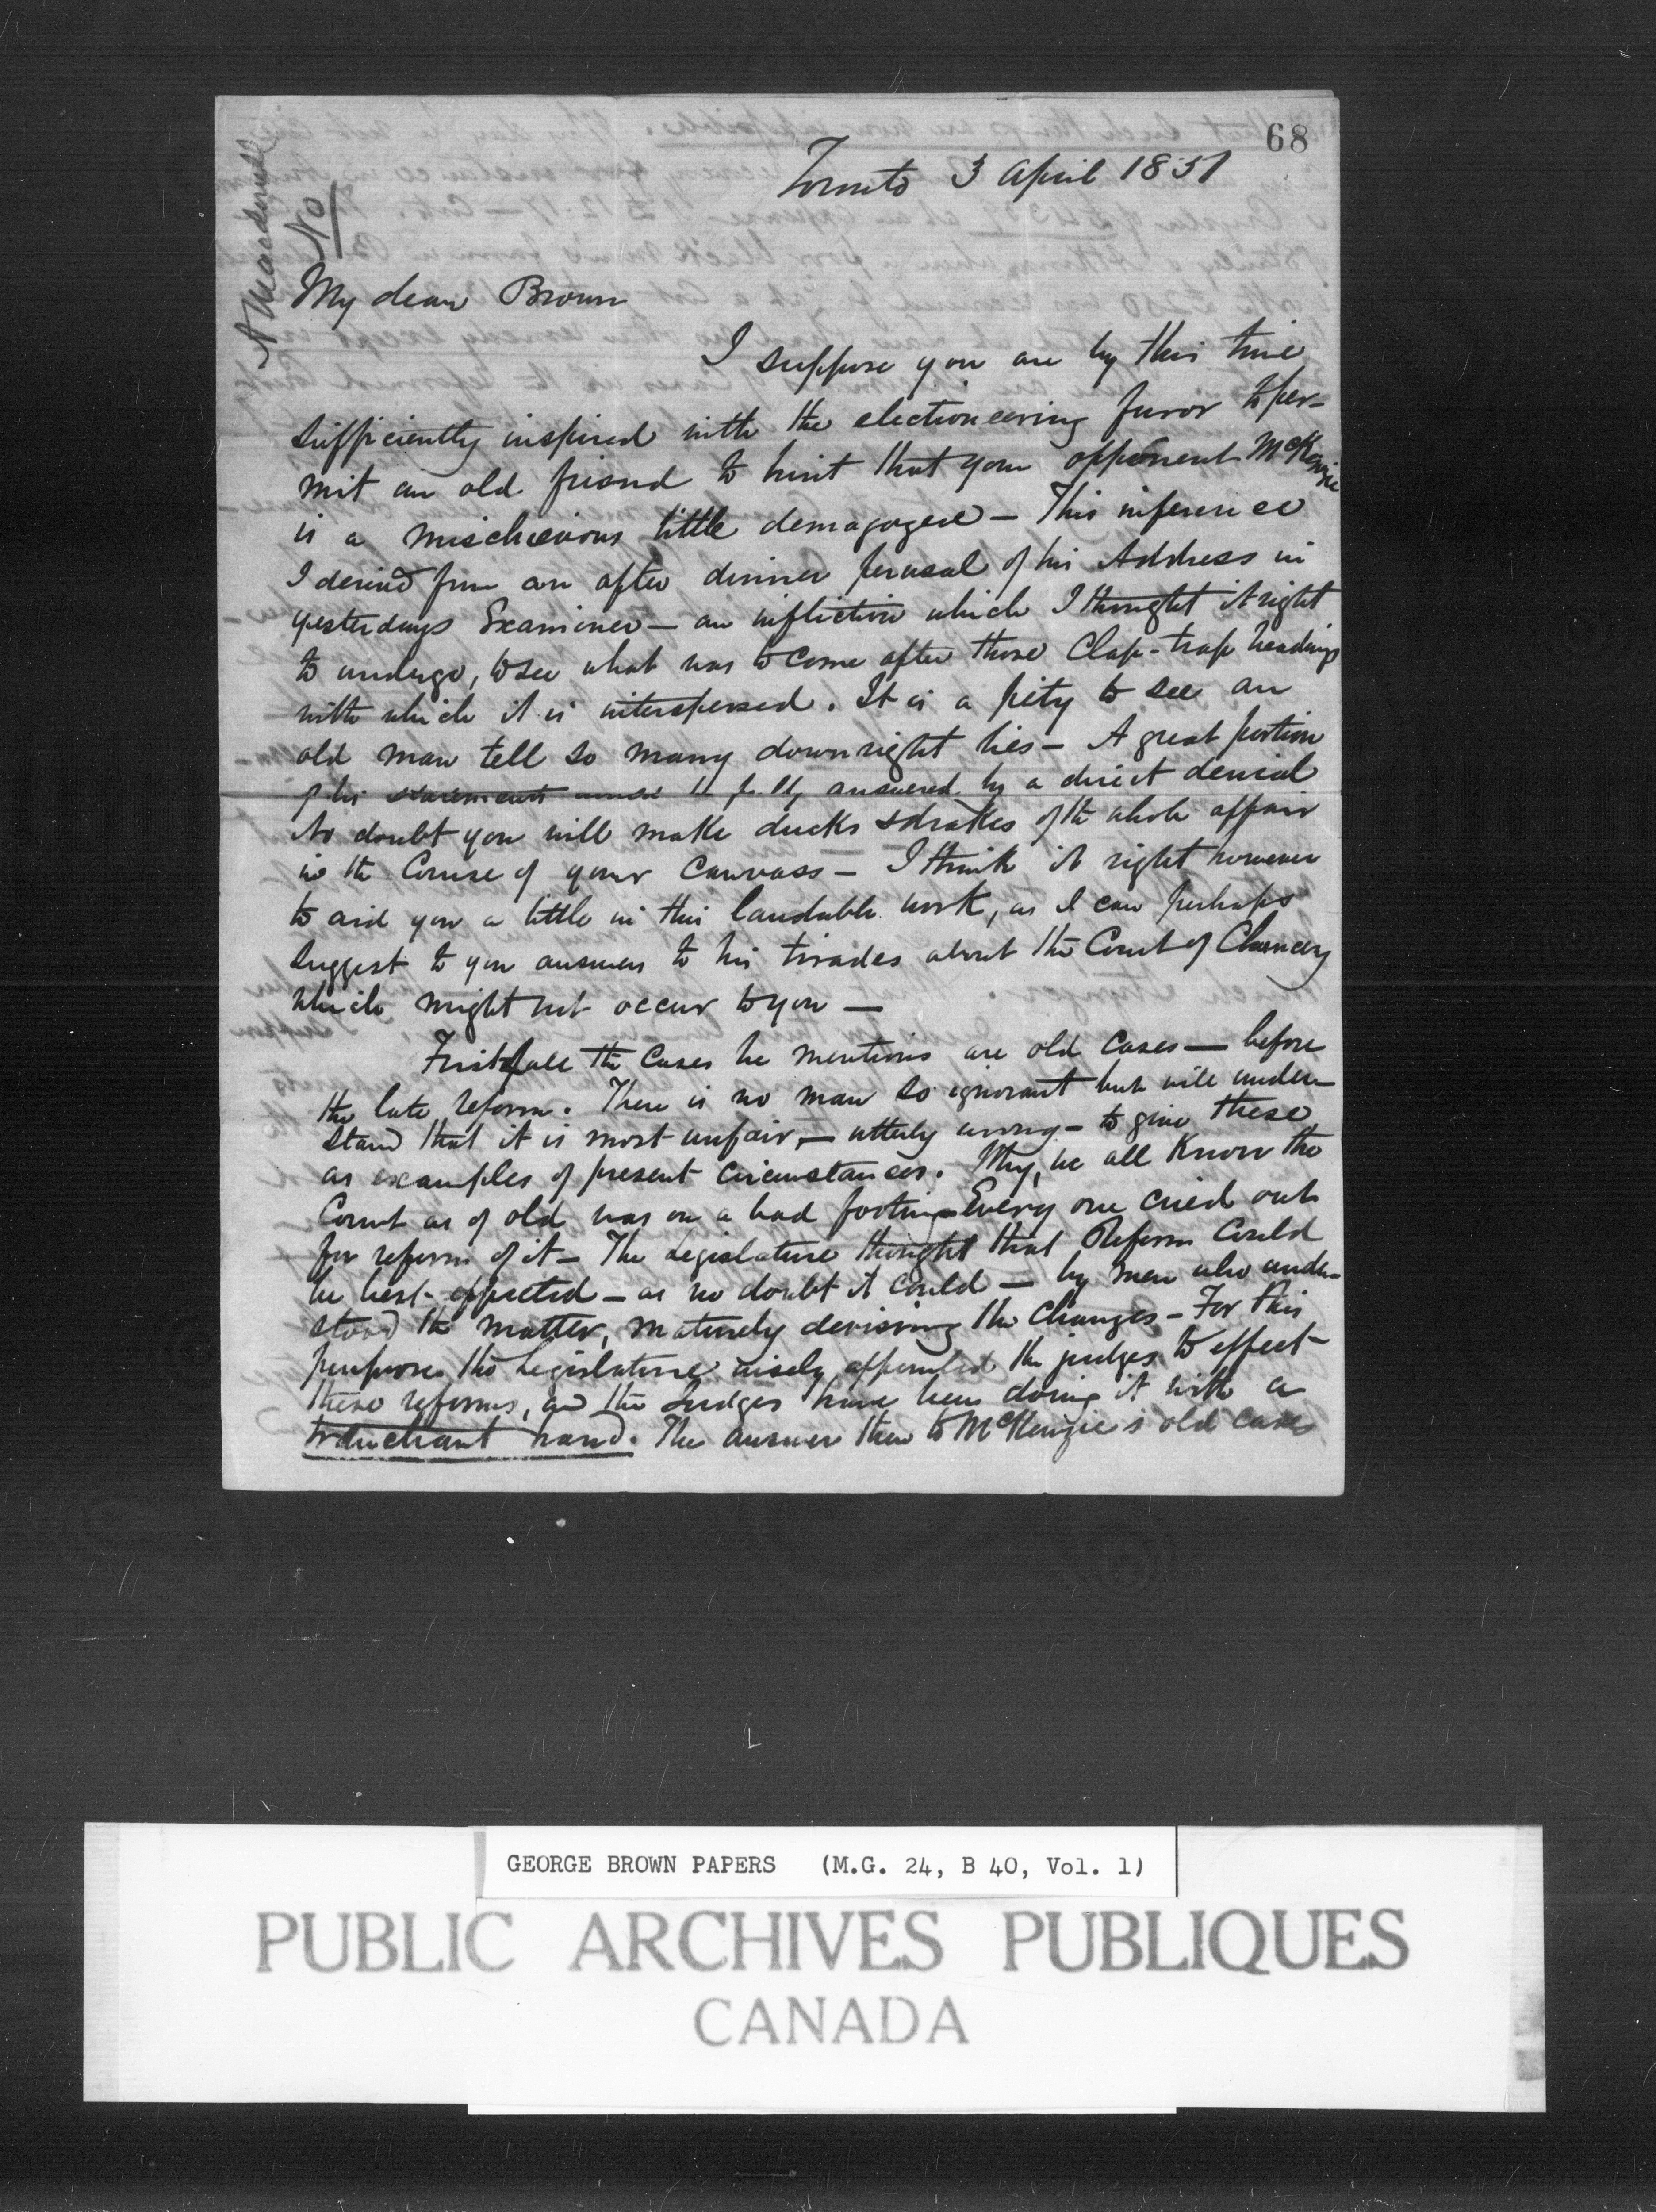 68
Toronto 3 April 1851
A Macdonell
No
My dear Brown
I suppose you are by this time
sufficiently inspired with the electioneering furor to per-
mit an old friend to hint that your opponent McKenzie
is a mischievous little demagogue — This inference
I derived from an after dinner perusal of his Address in
yesterdays Examiner — an infliction which I thought it right
to undergo, to see what was to come after those Clap-trap headings
with which it is interspersed. It is a pity to see an
old man tell so many downright lies — A great portion
of his statements fully answered by a direct denial
No doubt you will make ducks & drakes of the whole affair
in the Course of your Canvass — I think it right however
to aid you a little in this laudable work, as I can perhaps
suggest to you answers to his tirades about the Court of Chancery
which might not occur to you —
First of all the Cases he mentions are old Cases — before
the late reform. There is no man so ignorant but will under-
stand that it is most unfair, — utterly wrong — to give these
as examples of present circumstances. Why, we all Know the
Court as of old was on a bad footing — Every one cried out
for reform of it — The Legislature thought that Reform Could
be best effected — as no doubt it could — by men who under-
stood the matter, maturely devising the Changes — For this
purpose the Legislature wisely appointed the judges to effect
these reforms, and the Judges have been doing it with a
trenchant hand. The answer then to McKenzie's old Cases
GEORGE BROWN PAPERS (M.G. 24, B 40, Vol. 1)
PUBLIC ARCHIVES PUBLIQUES
CANADA